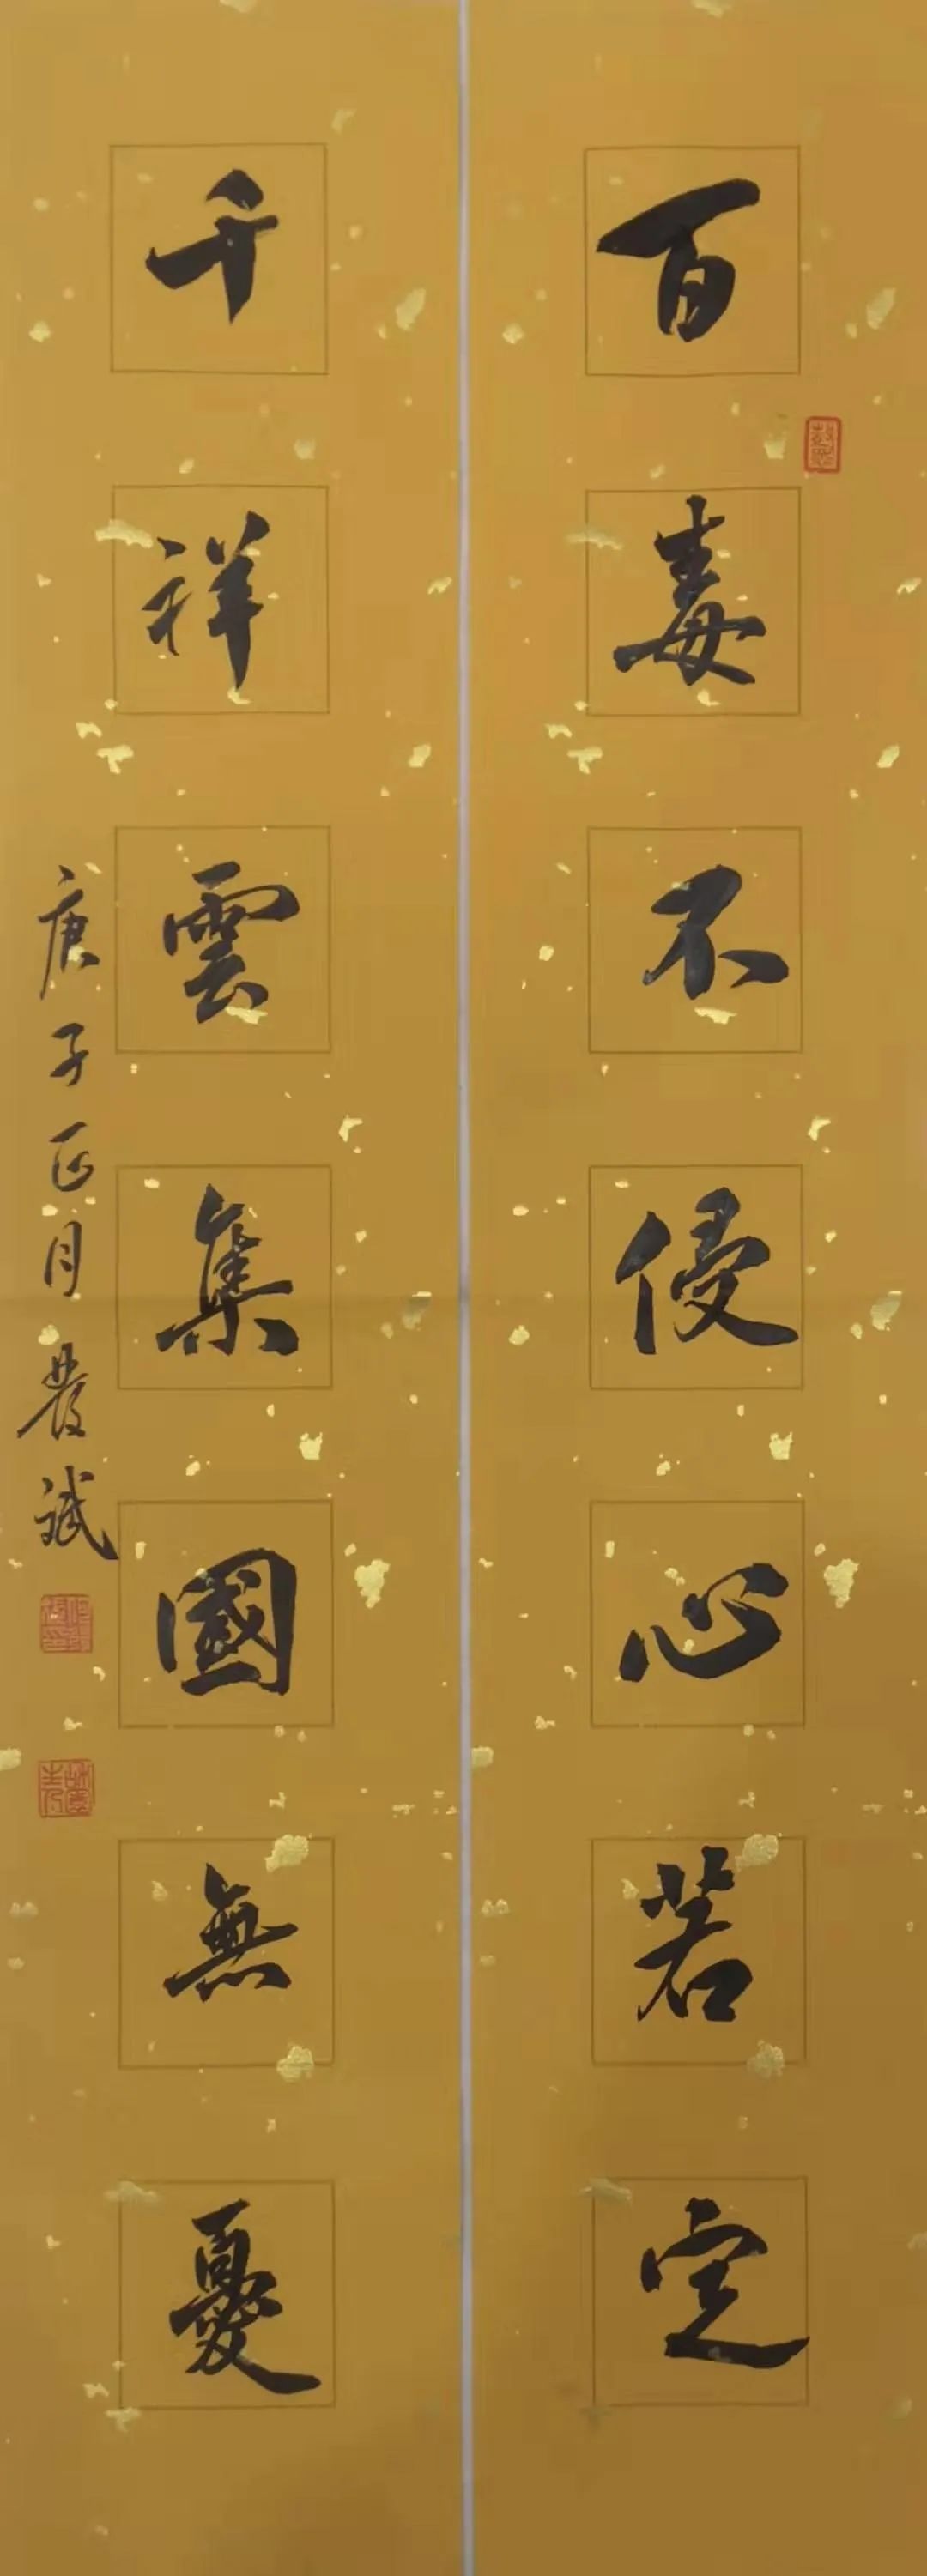 百毒不侵心若定
千祥雲集國無憂
庚子正月農斌